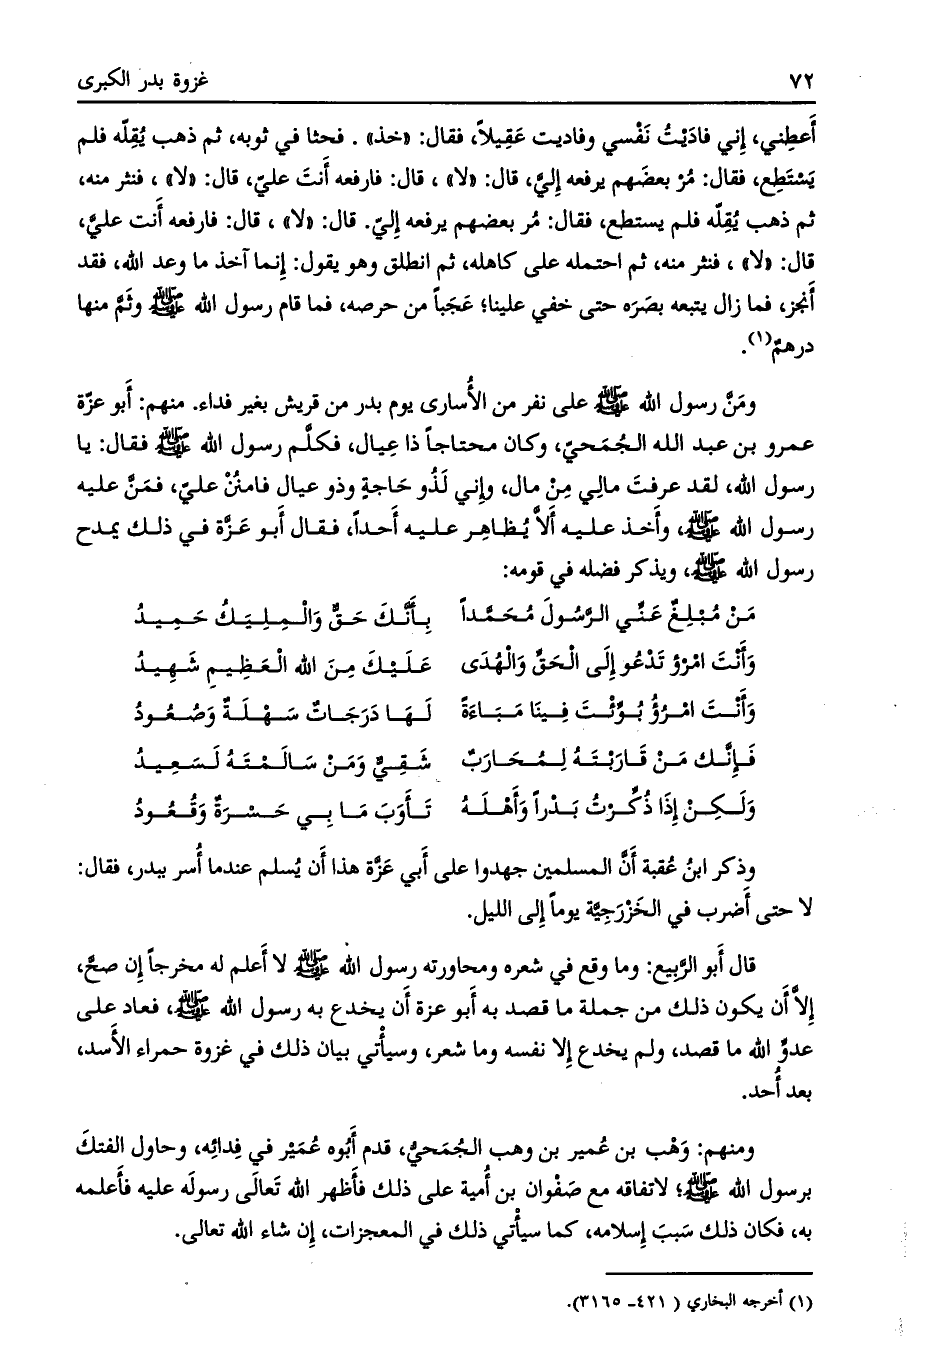 ٧٢ غزوة بدر الكبرى
أَعطِني، إِني فادَيْتُ نَفْسي وفاديت عَقِيلاً، فقال: «خذ» . فحثا في ثوبه، ثم ذهب يُقِلّه فلم
يَسْتَطِع، فقال: مُرْ بعضَهم يرفعه إِليَّ، قال: «لا» ، قال: فارفعه أَنتَ عليّ، قال: «لا» ، فنثر منه،
ثم ذهب يُقِلّه فلم يستطع، فقال: مُر بعضهم يرفعه إِليّ. قال: «لا» ، قال: فارفعه أَنت عليَّ،
قال: «لا» ، فنثر منه، ثم احتمله على كاهله، ثم انطلق وهو يقول: إِنما آخذ ما وعد الله، فقد
أَنجز، فما زال يتبعه بصَرَه حتى خفي علينا؛ عَجَباً من حرصه، فما قام رسول الله ﷺ وثَمَّ منها
درهمٌ(١).
ومَنَّ رسول الله ﷺ على نفر من الأُسارى يوم بدر من قريش بغير فداء. منهم: أَبو عزّة
عمرو بن عبد الله الجُمَحيّ، وكان محتاجاً ذا عِيال، فكلَّم رسول الله ﷺ فقال: يا
رسول الله، لقد عرفتَ مالي مِنْ مال، وإِني لَذُو حَاجةٍ وذو عيال فامنُنْ عليّ، فمَنَّ عليه
رسول الله ﷺ، وأَخذ عليه أَلاَّ يُظاهِر عليه أَحداً، فقال أَبو عَزَّة في ذلك يمدح
رسول الله ﷺ، ويذكر فضله في قومه:
مَنْ مُبْلِغٌ عَنِّي الرَّسُولَ مُحَمَّداً بِأَنَّكَ حَقٌّ وَالْمِلِيَكُ حَمِيدُ
وَأَنْتَ امْرُؤٌ تَدْعُو إِلَى الْحَقِّ وَالْهُدَى عَلَيْكَ مِنَ الله الْعَظِيمِ شَهِيدُ
وَأَنْتَ امْرُؤُ بُوِّئْتَ فِينَا مَبَاءَةً لَهَا دَرَجَاتٌ سَهْلَةٌ وَصُعُودُ
فَإِنَّكَ مَنْ قَارَبْتَهُ لِمُحَارَبٌ شَقِيٌّ وَمَنْ سَالَمْتَهُ لَسَعِيدُ
وَلَكِنْ إِذَا ذُكِّرْتُ بَدْراً وَأَهْلَهُ تَأَوَبَ مَا بِي حَسْرَةٌ وَقُعُودُ
وذكر ابنُ عُقبة أَنَّ المسلمين جهدوا على أَبي عَزَّة هذا أَن يُسلم عندما أُسر ببدر، فقال:
لا حتى أَضرب في الخَزْرَجِيَّة يوماً إِلى الليل.
قال أَبو الرَّبيع: وما وقع في شعره ومحاورته رسول الله ﷺ لا أَعلم له مخرجاً إِن صحَّ،
إِلاَّ أَن يكون ذلك من جملة ما قصد به أَبو عزة أَن يخدع به رسول الله ﷺ، فعاد على
عدوِّ الله ما قصد، ولم يخدع إِلا نفسه وما شعر، وسيأْتي بيان ذلك في غزوة حمراء الأسد،
بعد أُحد.
ومنهم: وَهْب بن عُمير بن وهب الجُمَحيُّ، قدم أَبُوه عُمَيْر في فِدائِه، وحاول الفتكَ
برسول الله ﷺ؛ لاتفاقه مع صَفْوان بن أُمية على ذلك فأَظهر الله تَعالَى رسولَه عليه فأَعلمه
به، فكان ذلك سَببَ إِسلامه، كما سيأْتي ذلك في المعجزات، إِن شاء الله تعالى.
(١) أخرجه البخاري ( ٤٢١- ٣١٦٥).